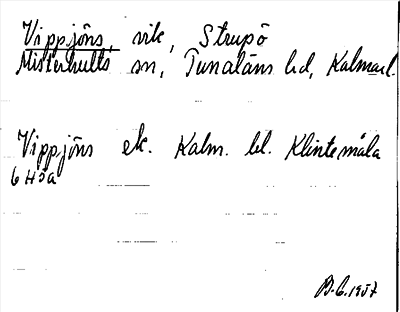 Vippjöns, vik, Strupö
Misterhults sn, Tunaläns hd, Kalmar l.
Vippjöns ek. Kalm. bl. Klintemåla
6 H5a
B.G. 1957